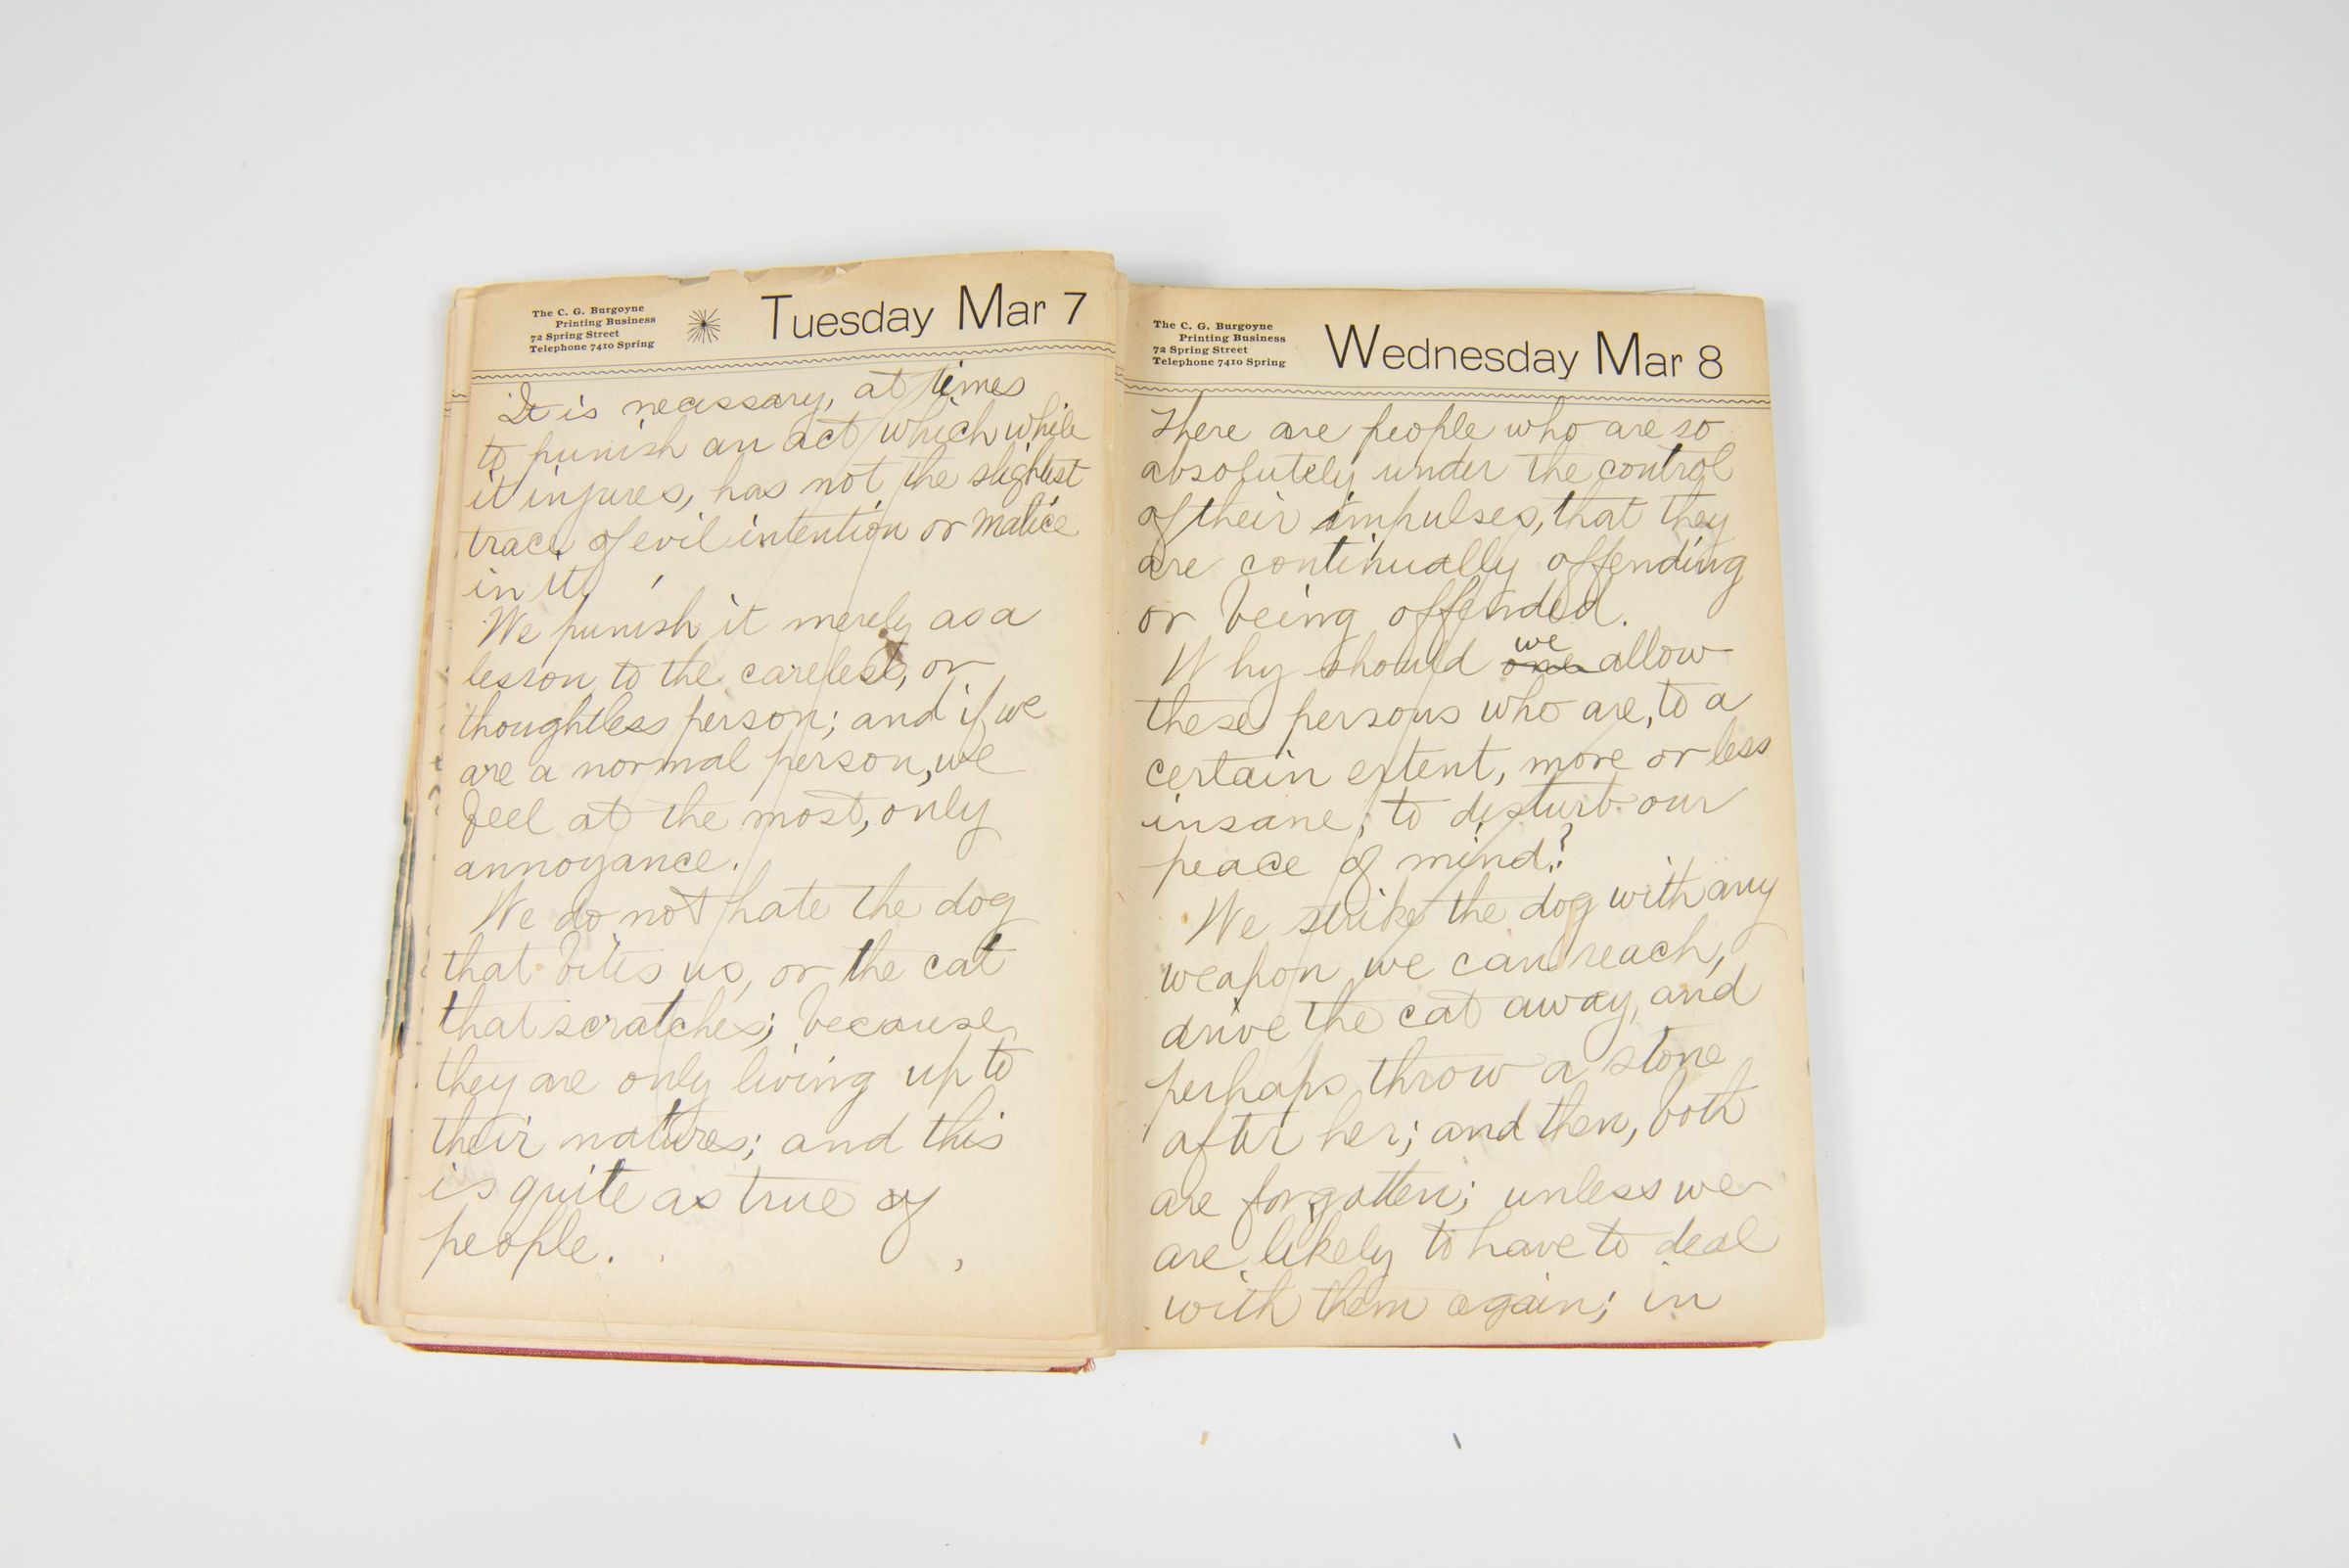 The C. G. Burgoyne
Printing Business
72 Spring Street
Telephone 7410 Spring
Tuesday Mar 7
It is necessary, at times
to punish an act which while
it injures, has not the slightest
trace of evil intention or malice
in it.
We punish it merely as a
lesson to the careless, or
thoughtless person; and if we
are a normal person, we
feel at the most, only
annoyance.
We do not hate the dog
that bites us, or the cat
that scratches; because
they are only living up to
their natures; and this
is quite as true of
people.
The C. G. Burgoyne
Printing Business
72 Spring Street
Telephone 7410 Spring
Wednesday Mar 8
There are people who are so
absolutely under the control
of their impulses, that they
are continually offending
or being offended.
we
Why should one allow
these persons who are, to a
certain extent, more or less
insane, to disturb our
peace of mind?
We strike the dog with any
weapon we can reach,
drive the cat away, and
perhaps throw a stone
after her; and then, both
are forgotten; unless we
are likely to have to deal
with them again; in